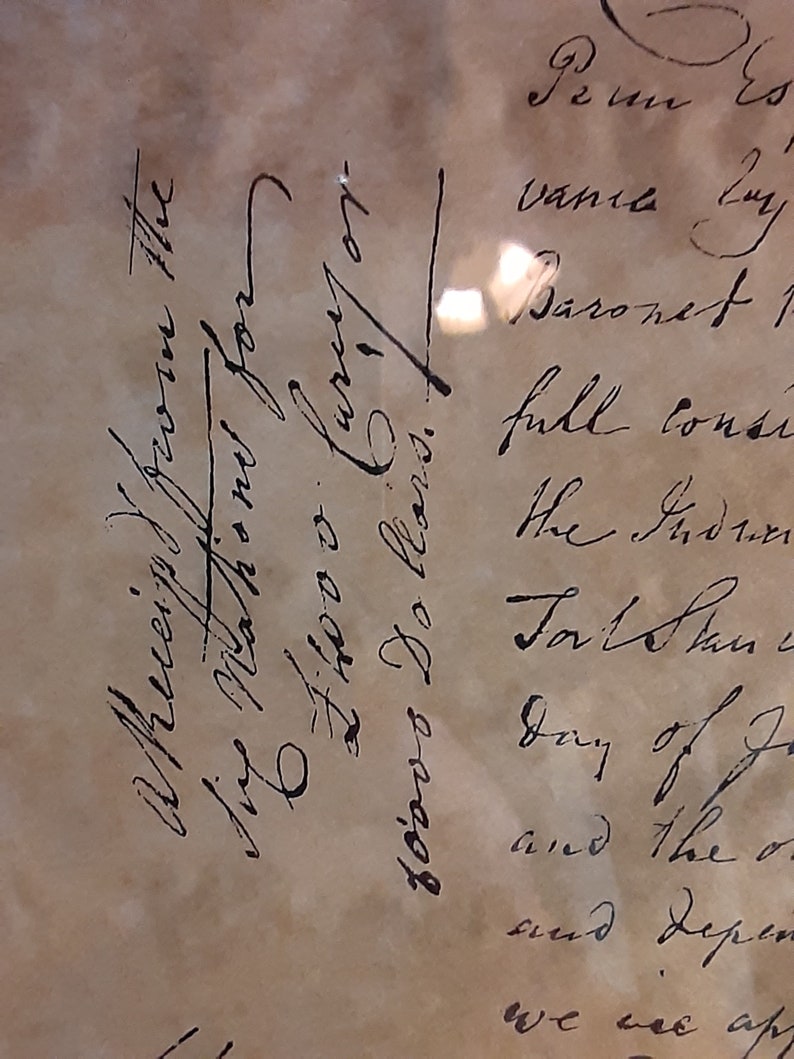 a Receipt from the
Six Nations for
£ Curr'y or
Dollars.
Penn Es
vance by
Baronet
full consi
the Indian
Fort Stan
Day of J
and the o
and depen
we are app